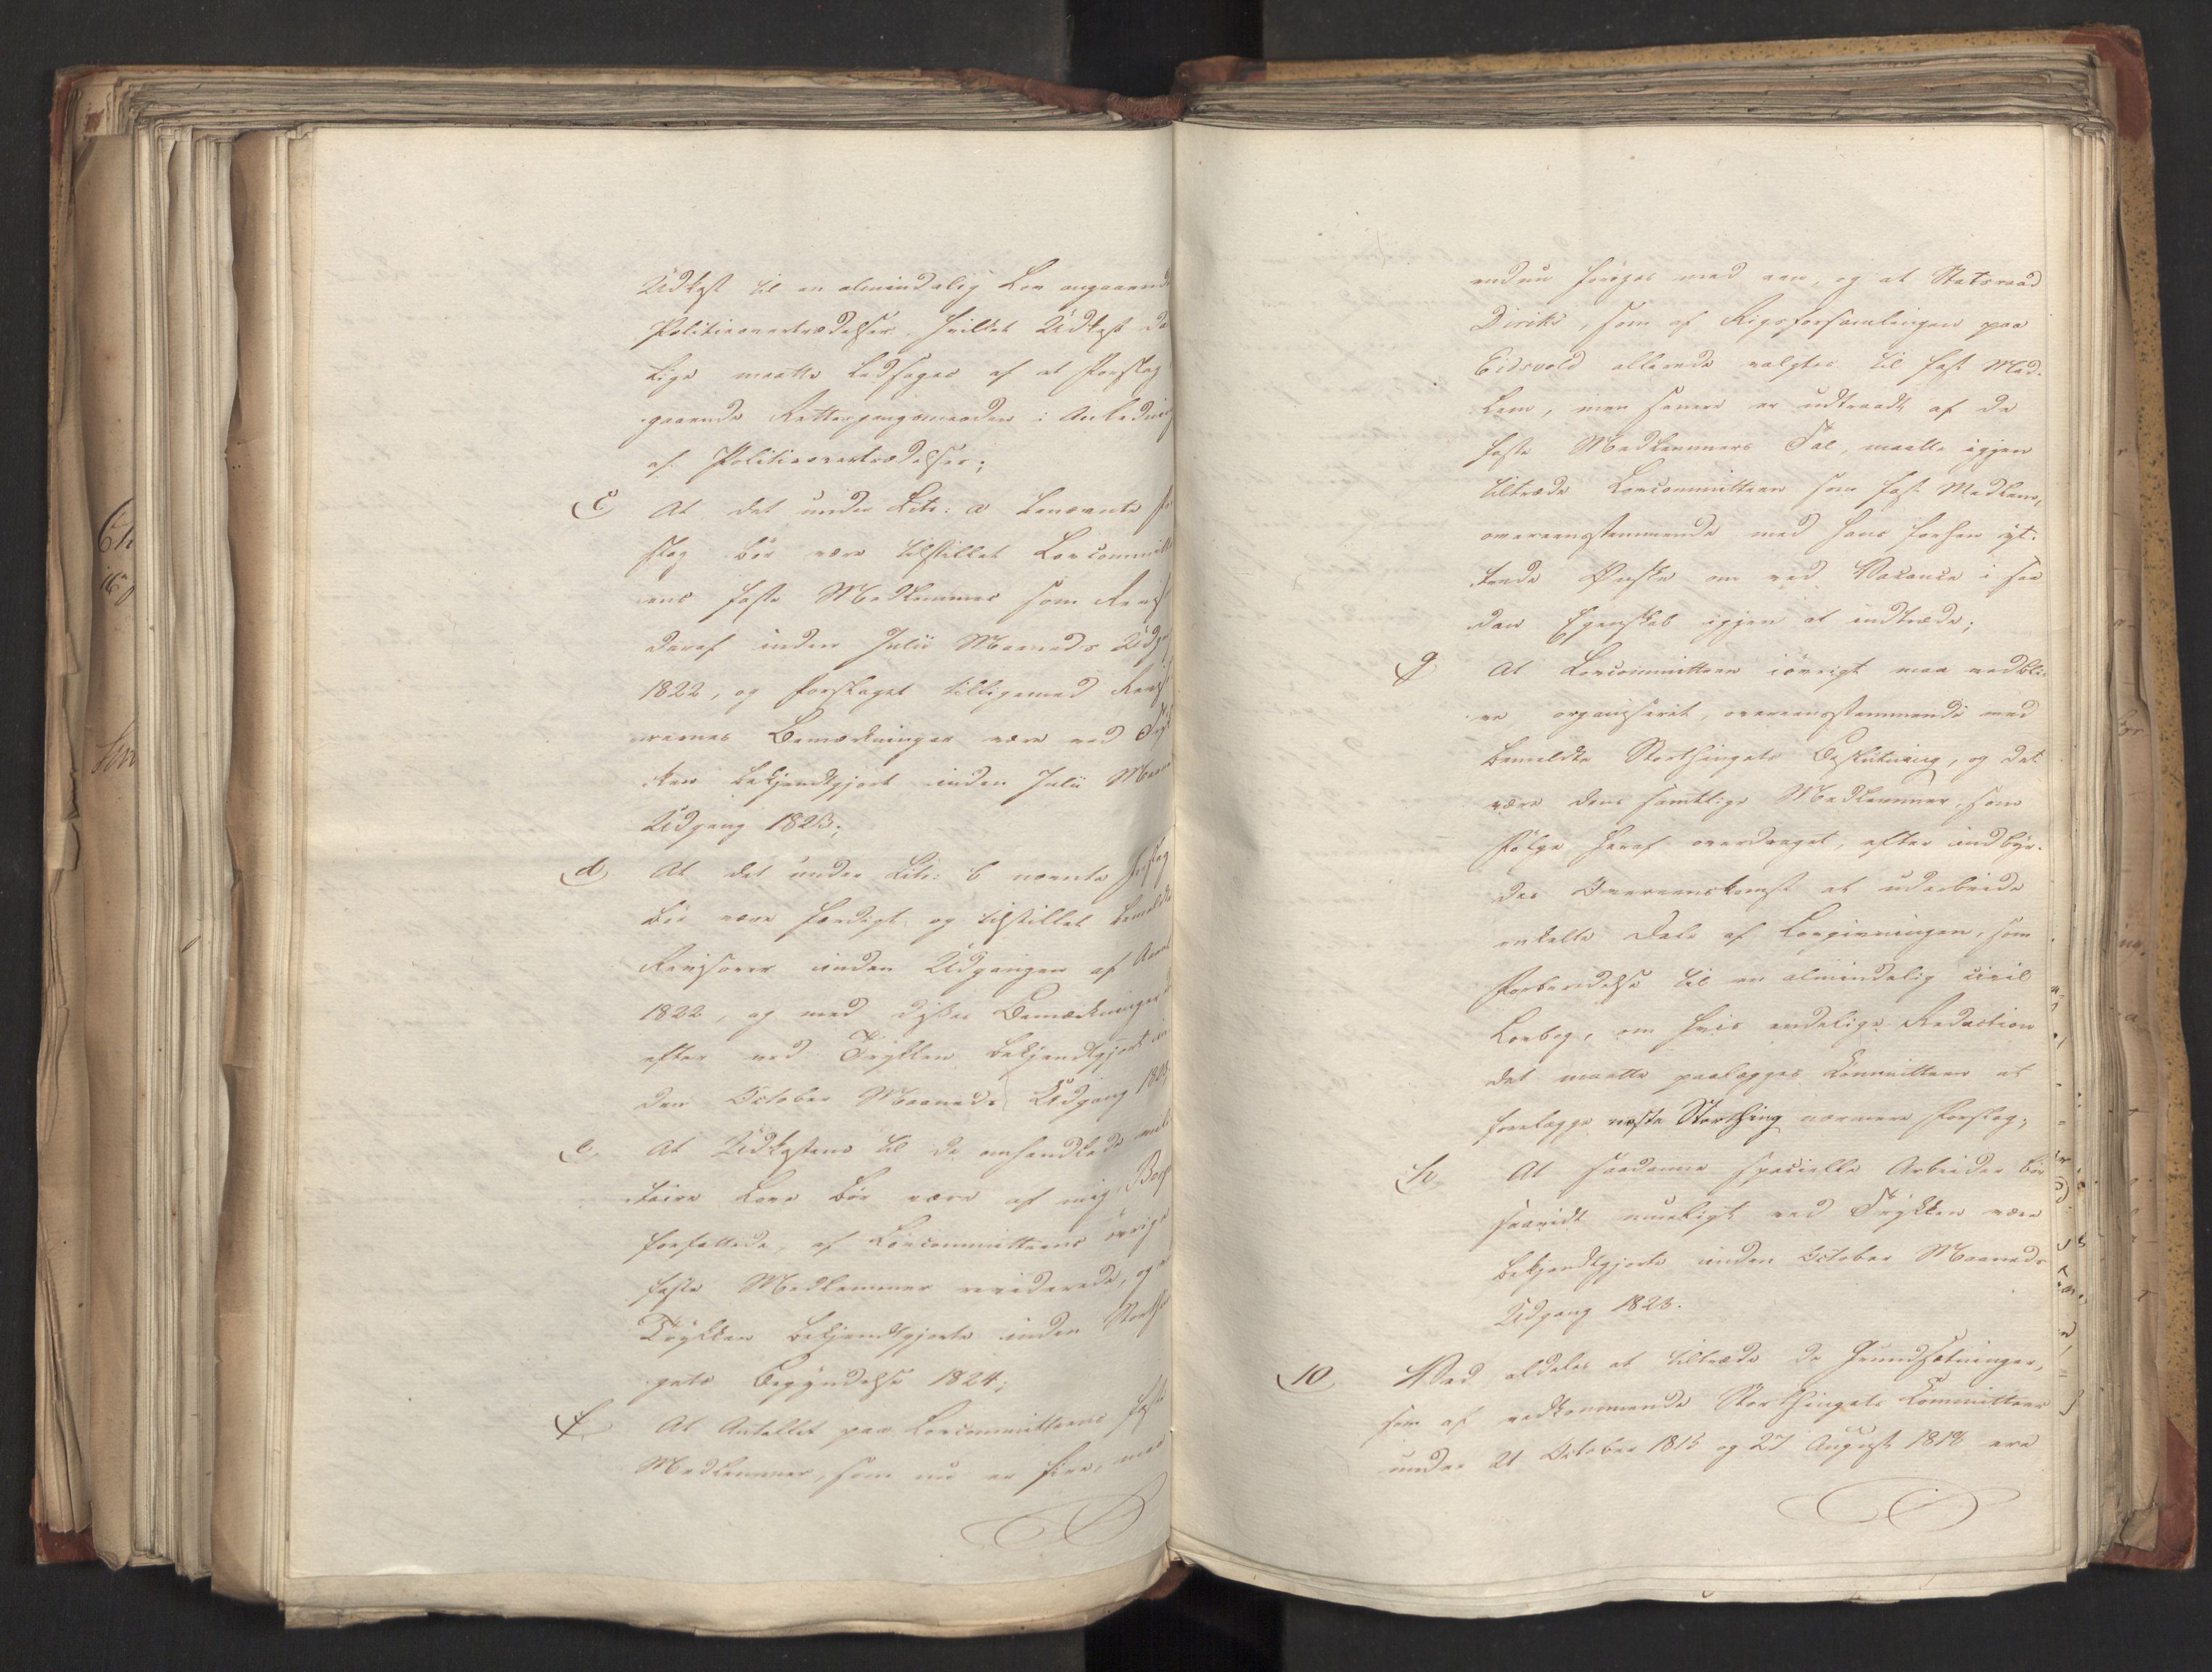 Udkast til en almindelig Lov angaaende
Politieovertrædelser, hvilket Udkast
lige maatte ledsages af et Forslag
gaaende Rettergangsmaaden i Anledning
af Politieovertrædelser;
c At det under Litr: a benævnte
slag bör være tilstillet Lovcommitte
ens faste Medlemmer som
deraf inden Julii Maaneds
1822, og Forslaget tilligemed
Bemærkninger være ved Tryk
ken bekjendtgjort inden Julii
Udgang 1823;
d At det under Litr: b nævnte Forslag
bör være færdigt og tilstillet bemeldte
Revisorer inden Udgangen af
1822, og med disses Bemærkninger
efter ved Trykken bekjendtgjort in
den October Maaneds Udgang 1823;
e At Udkastene til de omhandlede mili
taire Love bör være af mig,
forfattede, af Lovcommitteens övrige
faste Medlemmer reviderede, og
Trykken bekjendtgjorte inden Storthin
gets Begyndelse 1824;
f At Antallet paa Lovcommitteens faste
Medlemmer, som nu er fire, maa
endnu foröges med een, og at Statsraad
Diriks, som af Rigsforsamlingen paa
Eidsvold allerede valgtes til fast Med-
lem, men senere er udtraadt af de
faste Medlemmers Tal, maatte igjen
tiltræde Lovcommitteen som fast Medlem,
overeensstemmende med hans forhen yt-
trede Ønske om ved Vacance i saa
dan Egenskab igjen at indtræde;
g At Lovcommitteen iövrigt maa vedbli-
ve organiseret, overeensstemmende med
bemeldte Storthingets Beslutning, og det
være dens samtlige Medlemmer, som
Fölge heraf overdraget, efter indbyr-
des Overeenskomst at udarbeide
enkelte Dele af Lovgivningen, som
Forberedelse til en almindelig civil
Lovbog, om hvis endelige Redaction
det maatte paalægges Committeen at
forelægge næste Storthing nærmere Forslag;
h At saadanne specielle Arbeider bör
saavidt mueligt ved Trykken være
bekjendtgjorte inden October Maaneds
Udgang 1823.
10 Ved aldeles at tiltræde de Grundsætninger,
som af vedkommende Storthingets Committeer
under 21 October 1815 og 27 August 1818 ere